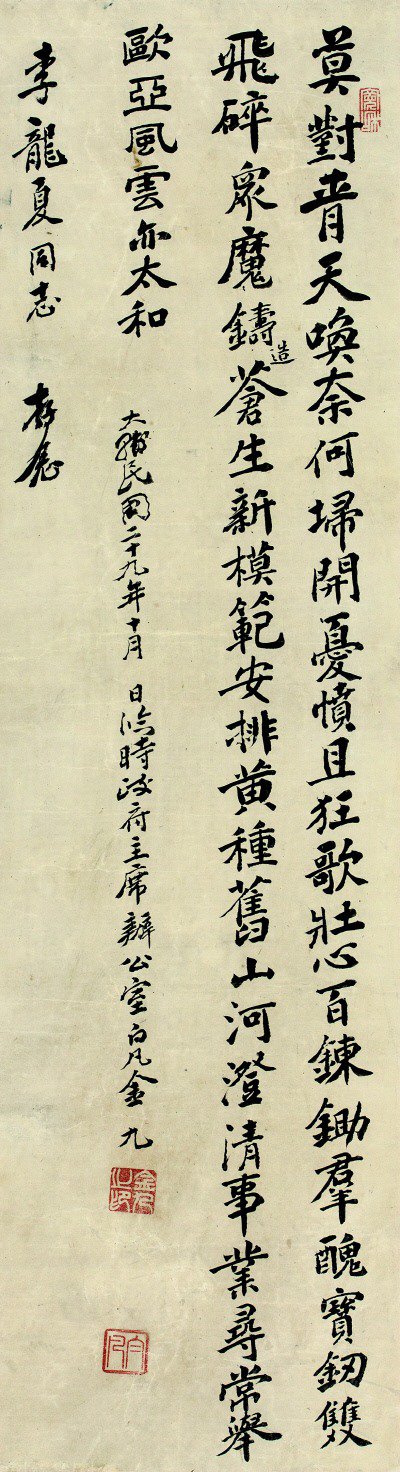 莫對青天喚奈何掃開憂憤且狂歌壯心百鍊鋤羣醜寶釰雙
飛碎衆魔鑄造蒼生新模範安排黃種舊山河澄清事業尋常舉
歐亞風雲亦太和
大韓民國二十九年十月 日臨時政府主席辦公室白凡金九
李龍夏同志 存念